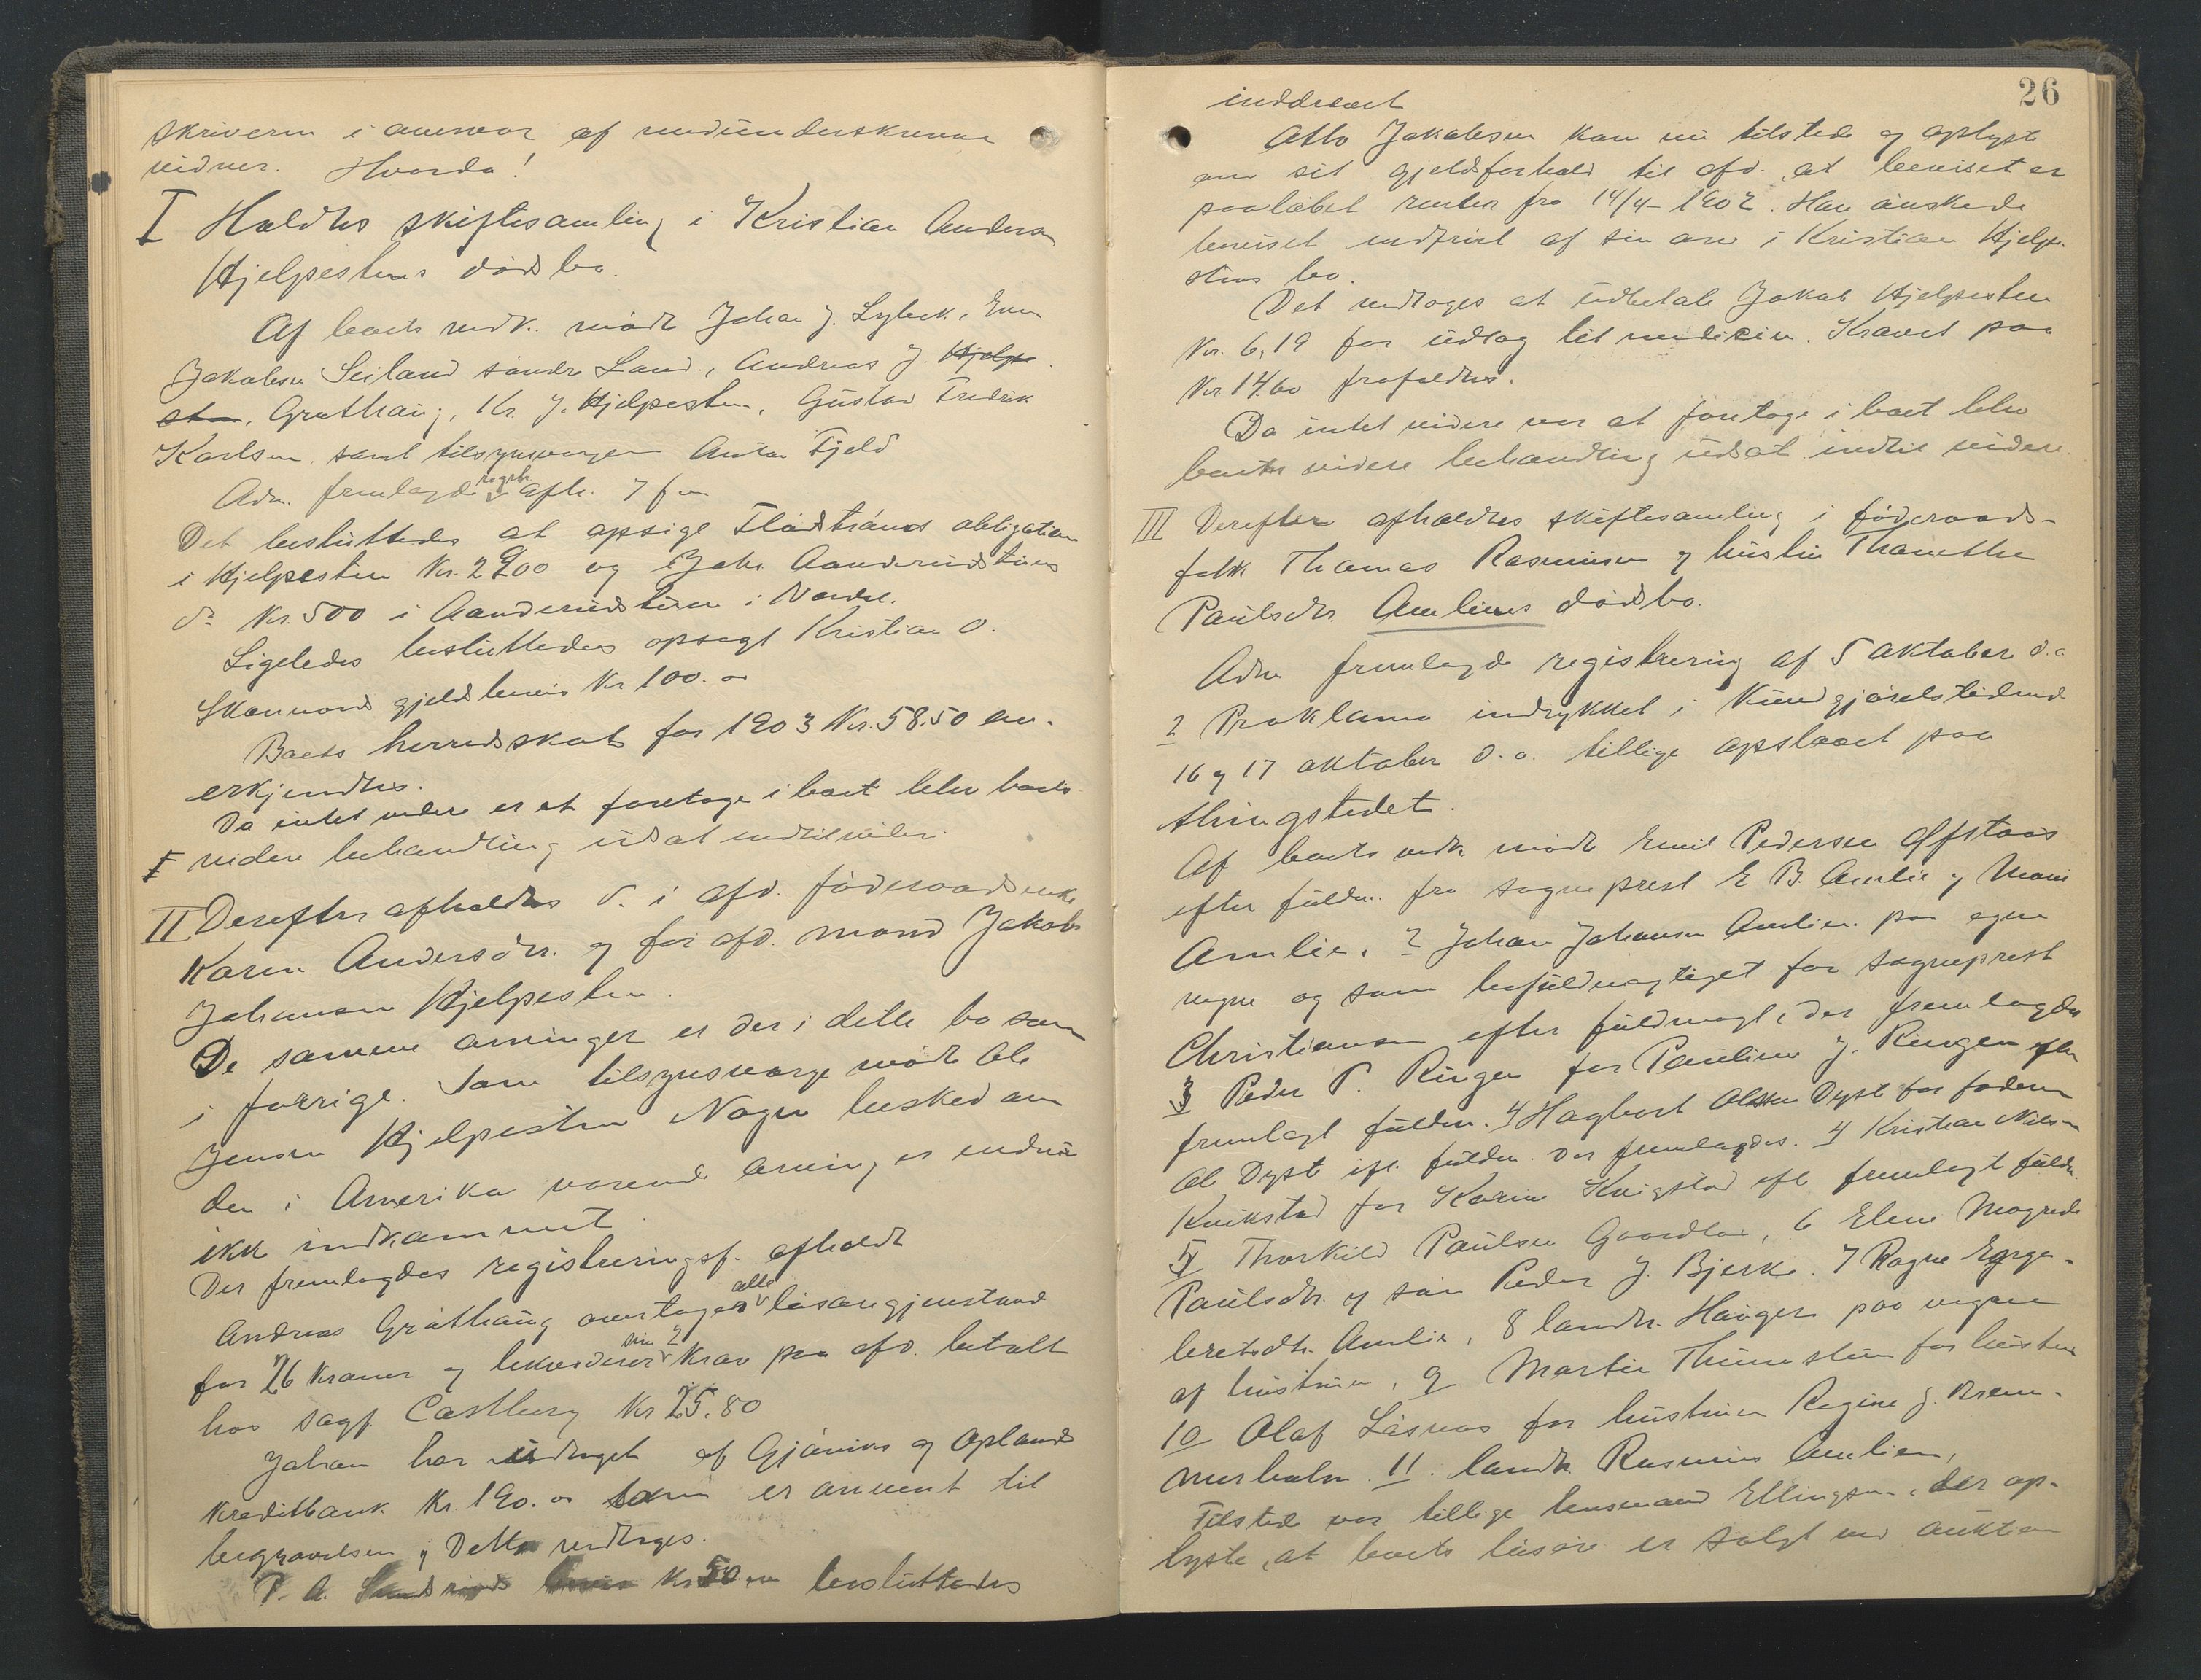 skriveren i overvær af medunderskrevne
vidner. Hvorda!
I Holdtes skiftesamling i Kristian Andersen
Hjelpestens dødsbo.
Af boets vedk. mødte Johan J. Lybeck, Even
Jakobsen Seiland søndre Land, Andreas J. Hjelpe
sten, Grøthaug, Kr. J. Hjelpesten, Gustav Fredrik
Karlsen, samt tilsynsværgen Anton Fjeld
Adm. fremlagde regstr. afh. 7 f m
Det besluttedes at opsige Flådstrånds obligation
i Hjelpesten Kr. 2900 og Johs Aanderudstuens
do Kr. 500 i Aanderudstuen i Nordre.
Ligeledes besluttedes opsagt Kristian O.
Skannords gjeldsbevis Kr 100.00
Boets herredsskat for 1903 Kr. 58.50 an-
erkjendtes.
Da intet videre er at foretage i boet blev boets
I videre behandling udsat indtil videre.
II Derefter afholdtes do i afd. føderaadsenke
Karen Andersdtr. og før afd. mand Jakob
Johansen Hjelpesten.
De samme arvinger er der i dette bo som
i forrige. Som tilsynsværge mødte Ole
Jensen Hjelpesten Nogen besked om
den i Amerika værende arving er endnu
ikke indkommet.
Der fremlagdes registreringsf. afholdt
Andreas Grøthaug overtager alle løsøregjenstande
for 26 kroner og likviderer sin 2 krav paa afd. betalt
hos sagf. Castberg Kr 25.80
Johan har udtaget af Gjøviks og Oplands
Kreditbank Kr. 190.00 som er anvent til
begravelsen, Dette vedtages.
P. A. Kr 50 besluttedes
26
inddrevet
Otto Jakobsen kom nu tilstede og oplyste
om sit gjeldsforhold til afd. at beviset er
paaløbet renter fra 14/4-1902. Han ønskede
beviset indfriet af sin arv i Kristian Hjelpe-
stens bo.
Det vedtoges at udbetale Jakob Hjelpesten
Kr. 6,19 for udlæg til medicin. Kravet paa
Kr 14.60 frafaldtes.
Da intet videre var at foretage i boet blev
boets videre behandling udsat indtil videre
III Derefter afholdtes skiftesamling i føderaads-
folk Thomas Rasmusen og hustru Thamethe
Paulsdtr. Amliens dødsbo.
Adm fremlagde registrering af 5 oktober d.a
2 Proklama indrykket i Kundgjørelsestidende
16 og 17 oktober d.a. tillige opslaaet paa
thingstedet.
Af boets vedk mødte Emil Pedersen Offstaas
efter fuldm. fra sogneprest E B. Amlie og Marie
Amlie. 2 Johan Johansen Amlien paa egne
vegne og som befuldmægtiget for sogneprest
Christiansen efter fuldmagt, der fremlagdes
3 Peder P. Ringen for Pauline J. Ringen efter
fremlagt fuldm. 4 Hagbert Olssen Dyst for faderen
Ole Dyst ifl. fuldm. der fremlagdes. 4 Kristian Nilsen
Kvikstad for Karen Kvigstad eft fremlagt fuldm.
5 Thorkild Paulsen Gaardløs, 6 Elene Magrede
Paulsdtr. og søn Peder J. Bjerke. 7 Ragne Enge-
bretsdtr. Amlie, 8 landh. Haugen paa vegne
af hustruen, 9 Martin Thune for hustru
10 Olaf Låsnas for hustruen Regine J. Brem-
merholm. 11. landh. Rasmus Amlien,
Tilstede var tillige lensmand Ellingsen, der op-
lyste, at boets løsøre er solgt ved auktion